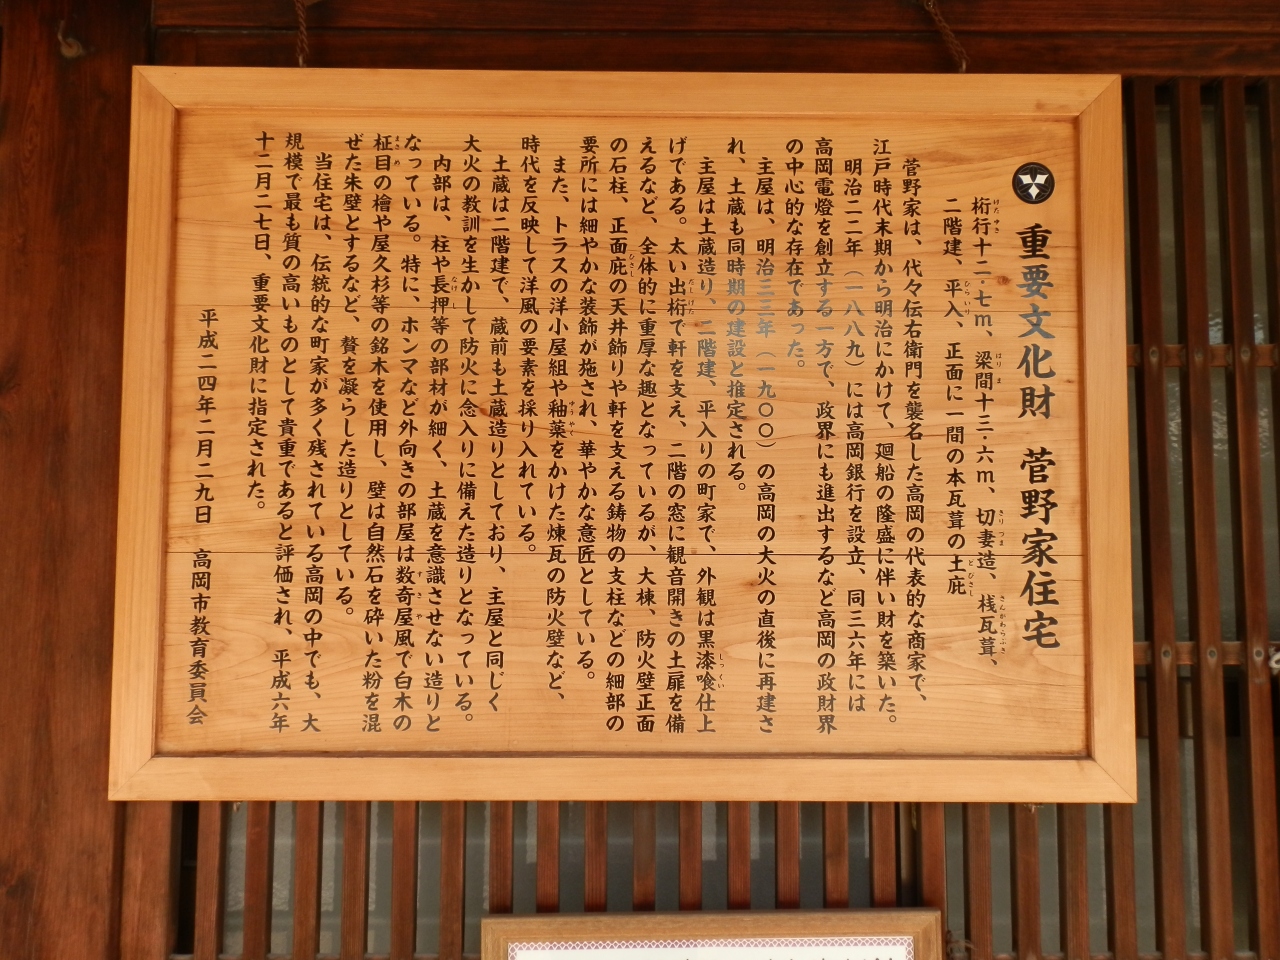 重要文化財　菅野家住宅
桁行十二・七ｍ、梁間十三・六ｍ、切妻造、桟瓦葺、
二階建、平入、正面に一間の本瓦葺の土庇
菅野家は、代々伝右衛門を襲名した高岡の代表的な商家で、
江戸時代末期から明治にかけて、廻船の隆盛に伴い財を築いた。
明治二二年（一八八九）には高岡銀行を設立、同三六年には
高岡電燈を創立する一方で、政界にも進出するなど高岡の政財界
の中心的な存在であった。
主屋は、明治三三年（一九〇〇）の高岡の大火の直後に再建さ
れ、土蔵も同時期の建設と推定される。
主屋は土蔵造り、二階建、平入りの町家で、外観は黒漆喰仕上
げである。太い出桁で軒を支え、二階の窓に観音開きの土扉を備
えるなど、全体的に重厚な趣となっているが、大棟、防火壁正面
の石柱、正面庇の天井飾りや軒を支える鋳物の支柱などの細部の
要所には細やかな装飾が施され、華やかな意匠としている。
また、トラスの洋小屋組や釉薬をかけた煉瓦の防火壁など、
時代を反映して洋風の要素を採り入れている。
土蔵は二階建で、蔵前も土蔵造りとしており、主屋と同じく
大火の教訓を生かして防火に念入りに備えた造りとなっている。
内部は、柱や長押等の部材が細く、土蔵を意識させない造りと
なっている。特に、ホンマなど外向きの部屋は数奇屋風で白木の
柾目の檜や屋久杉等の銘木を使用し、壁は自然石を砕いた粉を混
ぜた朱壁とするなど、贅を凝らした造りとしている。
当住宅は、伝統的な町家が多く残されている高岡の中でも、大
規模で最も質の高いものとして貴重であると評価され、平成六年
十二月二七日、重要文化財に指定された。
平成二四年二月二九日　高岡市教育委員会